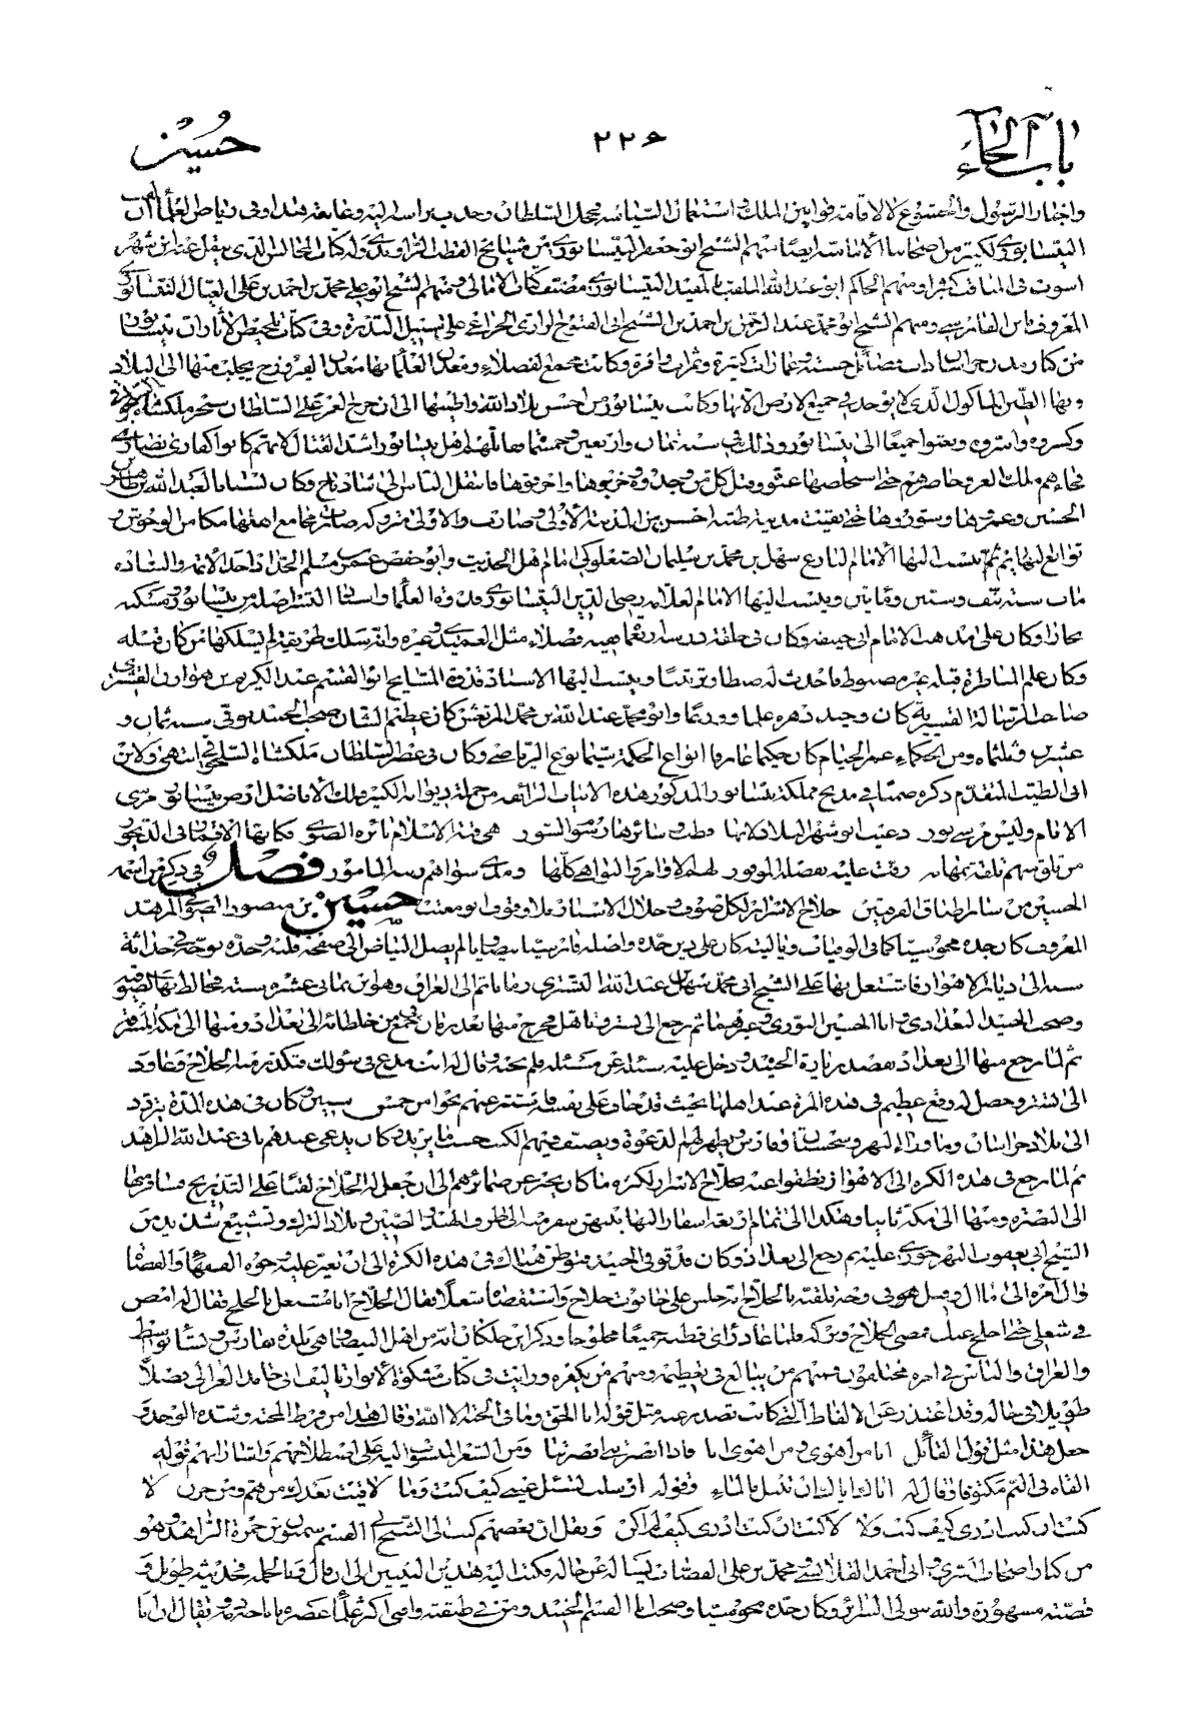 باب الحاء ٢٢٦ حسين
النيسابوري لكثير من اصحابنا الامامية ايضا منهم الشيخ ابو جعفر النيسابوري من مشايخ القطب الراوندي وله كتاب المجالس الذي ينقل عنه ابن شهر
اسوب في المناقب كثيرا ومنهم الحاكم ابو عبد الله الملقب بالمفيد النيسابوري مصنف كتاب الامالي ومنهم الشيخ ابو علي محمد بن احمد بن علي الفتال النيسابوري
المعروف بابن الفارسي ومنهم الشيخ ابو محمد عبد الرحمن بن احمد بن الشيخ ابي الفتوح الرازي الخزاعي على سبيل التذكرة وفي كتاب تلخيص الاثار ان نيسابور
من كبار مدن خراسان ذات فضائل حسنة وعمارات كثيرة وثمرات وافرة وكانت مجمع الفضلاء ومعدن العلماء بها معدن الفيروزج يجلب منها الى البلاد
وبها الطين الماكول الذي لا يوجد في جميع الارض الا بها وكانت نيسابور من احسن بلاد الله واطيبها الى ان خرج الغز على السلطان سنجر بن ملكشاه
وكسروه واسروه وبعثوا جميعا الى نيسابور وذلك في سنة ثمان واربعين وخمسمائة فقاتلهم اهل نيسابور اشد القتال لانهم كانوا كفارا نصارى
الحسين وعمرها وسورها حتى بقيت مدينة طيبة احسن من المدينة الاولى وصارت الاولى متروكة صارت مجامع اهلها مكامن الوحوش
ينسب اليها الامام البارع سهل بن محمد بن سليمان الصعلوكي امام اهل الحديث وابو حفص عمر بن مسلم الحداد احد الائمة والسادة
مات سنة نيف وستين ومائتين وينسب اليها الامام العلامة رضي الدين النيسابوري قدوة العلماء واستاد البشر اصله من نيسابور ومسكنه
بخارا وكان على مذهب الامام ابي حنيفة وكان في حلقة درسه اربعمائة فقيه فضلاء مثل العميدي وغيره وانه سلك طريقة لم يسلكها من كان قبله
وكان علم المناظرة قبله غير مضبوط فاحدث له ضبطا وترتيبا وينسب اليها الاستاد قدوة المشايخ ابو القسم عبد الكريم بن هوازن القشيري
صاحب الرسالة القشيرية كان وحيد دهره علما وورعا وابو محمد عبد الله بن محمد المرتعش كان عظيم الشان صحب الجنيد توفي سنة ثمان و
عشرين وثلثمائة ومن الحكماء عمر الخيام كان حكيما عارفا انواع الحكمة سيما نوع الرياضي وكان في عصر السلطان ملكشاه السلجوقي انتهى ولابن
ابي الطيب المتقدم ذكره ضمنا في مديح مملكة نيسابور المذكور هذه الابيات الرائقة من جملة ديوانه الكبير ملك الافاضل ارض نيسابور مرسى
الانام وليس مرسى بور دعيت ابو شهر البلاد لانها قطب وسائرها رسوم السور هي قبة الاسلام نائرة الصوى فكانها الاقمار في الديجور
من تلق منهم تلقه بمهابة رفت عليه بفضله الموفور لهم الاوامر والنواهي كلها ومدى سواهم رتبة المامور فصل في ذكر من اسمه
الحسين من سائر طبقات الفريقين حلاج الاسرار لكل صوفي وحلال الاستار بلا وقوف ابو مغيث حسين بن منصور الصوفي الزاهد
المعروف كان جده مجوسيا كما في الوفيات
سنه الى ديار الاهواز فاشتغل بها على الشيخ ابي محمد سهل بن عبد الله التستري زمانا ثم الى العراق وهو ابن ثماني عشرة سنة فخالط بها الصوفية
وصحب الجنيد البغدادي وابا الحسين النوري وغيرهما ثم رجع الى تستر وتاهل فخرج منها بعد زمان في جمع من خلطائه الى بغداد ومنها الى مكة المشرفة
ثم لما رجع منها الى بغداد قصد زيارة الجنيد ودخل عليه وسئله عن مسئلة فلم يجبه وقال له انت مدع في سؤلك فتكدر منه الحلاج فعاود
الى تستر وحصل له وقع عظيم في هذه المرة عند اهلها بحيث قد خاف على نفسه فاستتر عنهم نحوا من خمس سنين وكان في هذه المدة يتردد
الى بلاد خراسان وما وراء النهر وسجستان وفارس ويظهر لهم الدعوة ويصنف فيهم الكتب حسبما يريد وكان يدعى عندهم بابي عبد الله الزاهد
ثم لما رجع في هذه الكرة الى الاهواز نطقوا عنه بحلاج الاسرار لكثرة ما كان يخبر عن ضمائرهم الى ان جعل له الحلاج لقبا على التدريج فسافر بها
الى البصرة ومنها الى مكة ثانيا وهكذا الى تمام اربعة اسفار اليها
الشيخ ابي يعقوب النهرجوري عليه ثم رجع الى بغداد وكان قد توفي الجنيد فتوطن هناك في هذه الكرة الى ان تغير عليه وجوه الفقهاء والقضاة
وال امره الى ما ال وقيل هو في وجه تلقبه بالحلاج انه جلس على حانوت حلاج واستقضاه شغلا فقال الحلاج انا مشتغل بالحلج فقال له امض
في شغلي حتى احلج عنك فمضى الحلاج وتركه فلما عاد راى قطنه جميعا محلوجا وذكر ابن خلكان انه من اهل البيضاء وهي بلدة بفارس ونشا بواسط
والعراق والناس في امره مختلفون فمنهم من يبالغ في تعظيمه ومنهم من يكفره ورايت في كتاب مشكوة الانوار تاليف ابي حامد الغزالي فصلا
طويلا في حاله وقد اعتذر عن الالفاظ التي كانت تصدر عنه مثل قوله انا الحق وما في الجبة الا الله وقال هذا من فرط المحبة وشدة الوجد و
جعل هذا مثل قول القائل انا من اهوى ومن اهوى انا فاذا ابصرتني ابصرتنا ومن الشعر المنسوب اليه على اصطلاحهم واشاراتهم قوله
القاه في اليم مكتوفا وقال له اياك اياك ان تبتل بالماء وقوله ارسلت تسئل عني كيف كنت وما لاقيت بعدك من هم ومن حزن لا
كنت ان كنت ادري كيف كنت ولا لا كنت ان كنت ادري كيف لم اكن ونقل ان بعضهم كتب الى الشيخ ابي القسم سمنون بن حمزة الزاهد وهو
من كبار اصحاب السري وابي احمد القلانسي ومحمد بن علي القصاب يساله عن حاله فكتب اليه هذين البيتين الى ان قال وبالجملة فحديثه طويل و
قصته مشهورة والله متولى السرائر وكان جده مجوسيا وصحب ابا القسم الجنيد ومن في طبقته وافتى اكثر علماء عصره باباحة دمه ويقال ان ابا